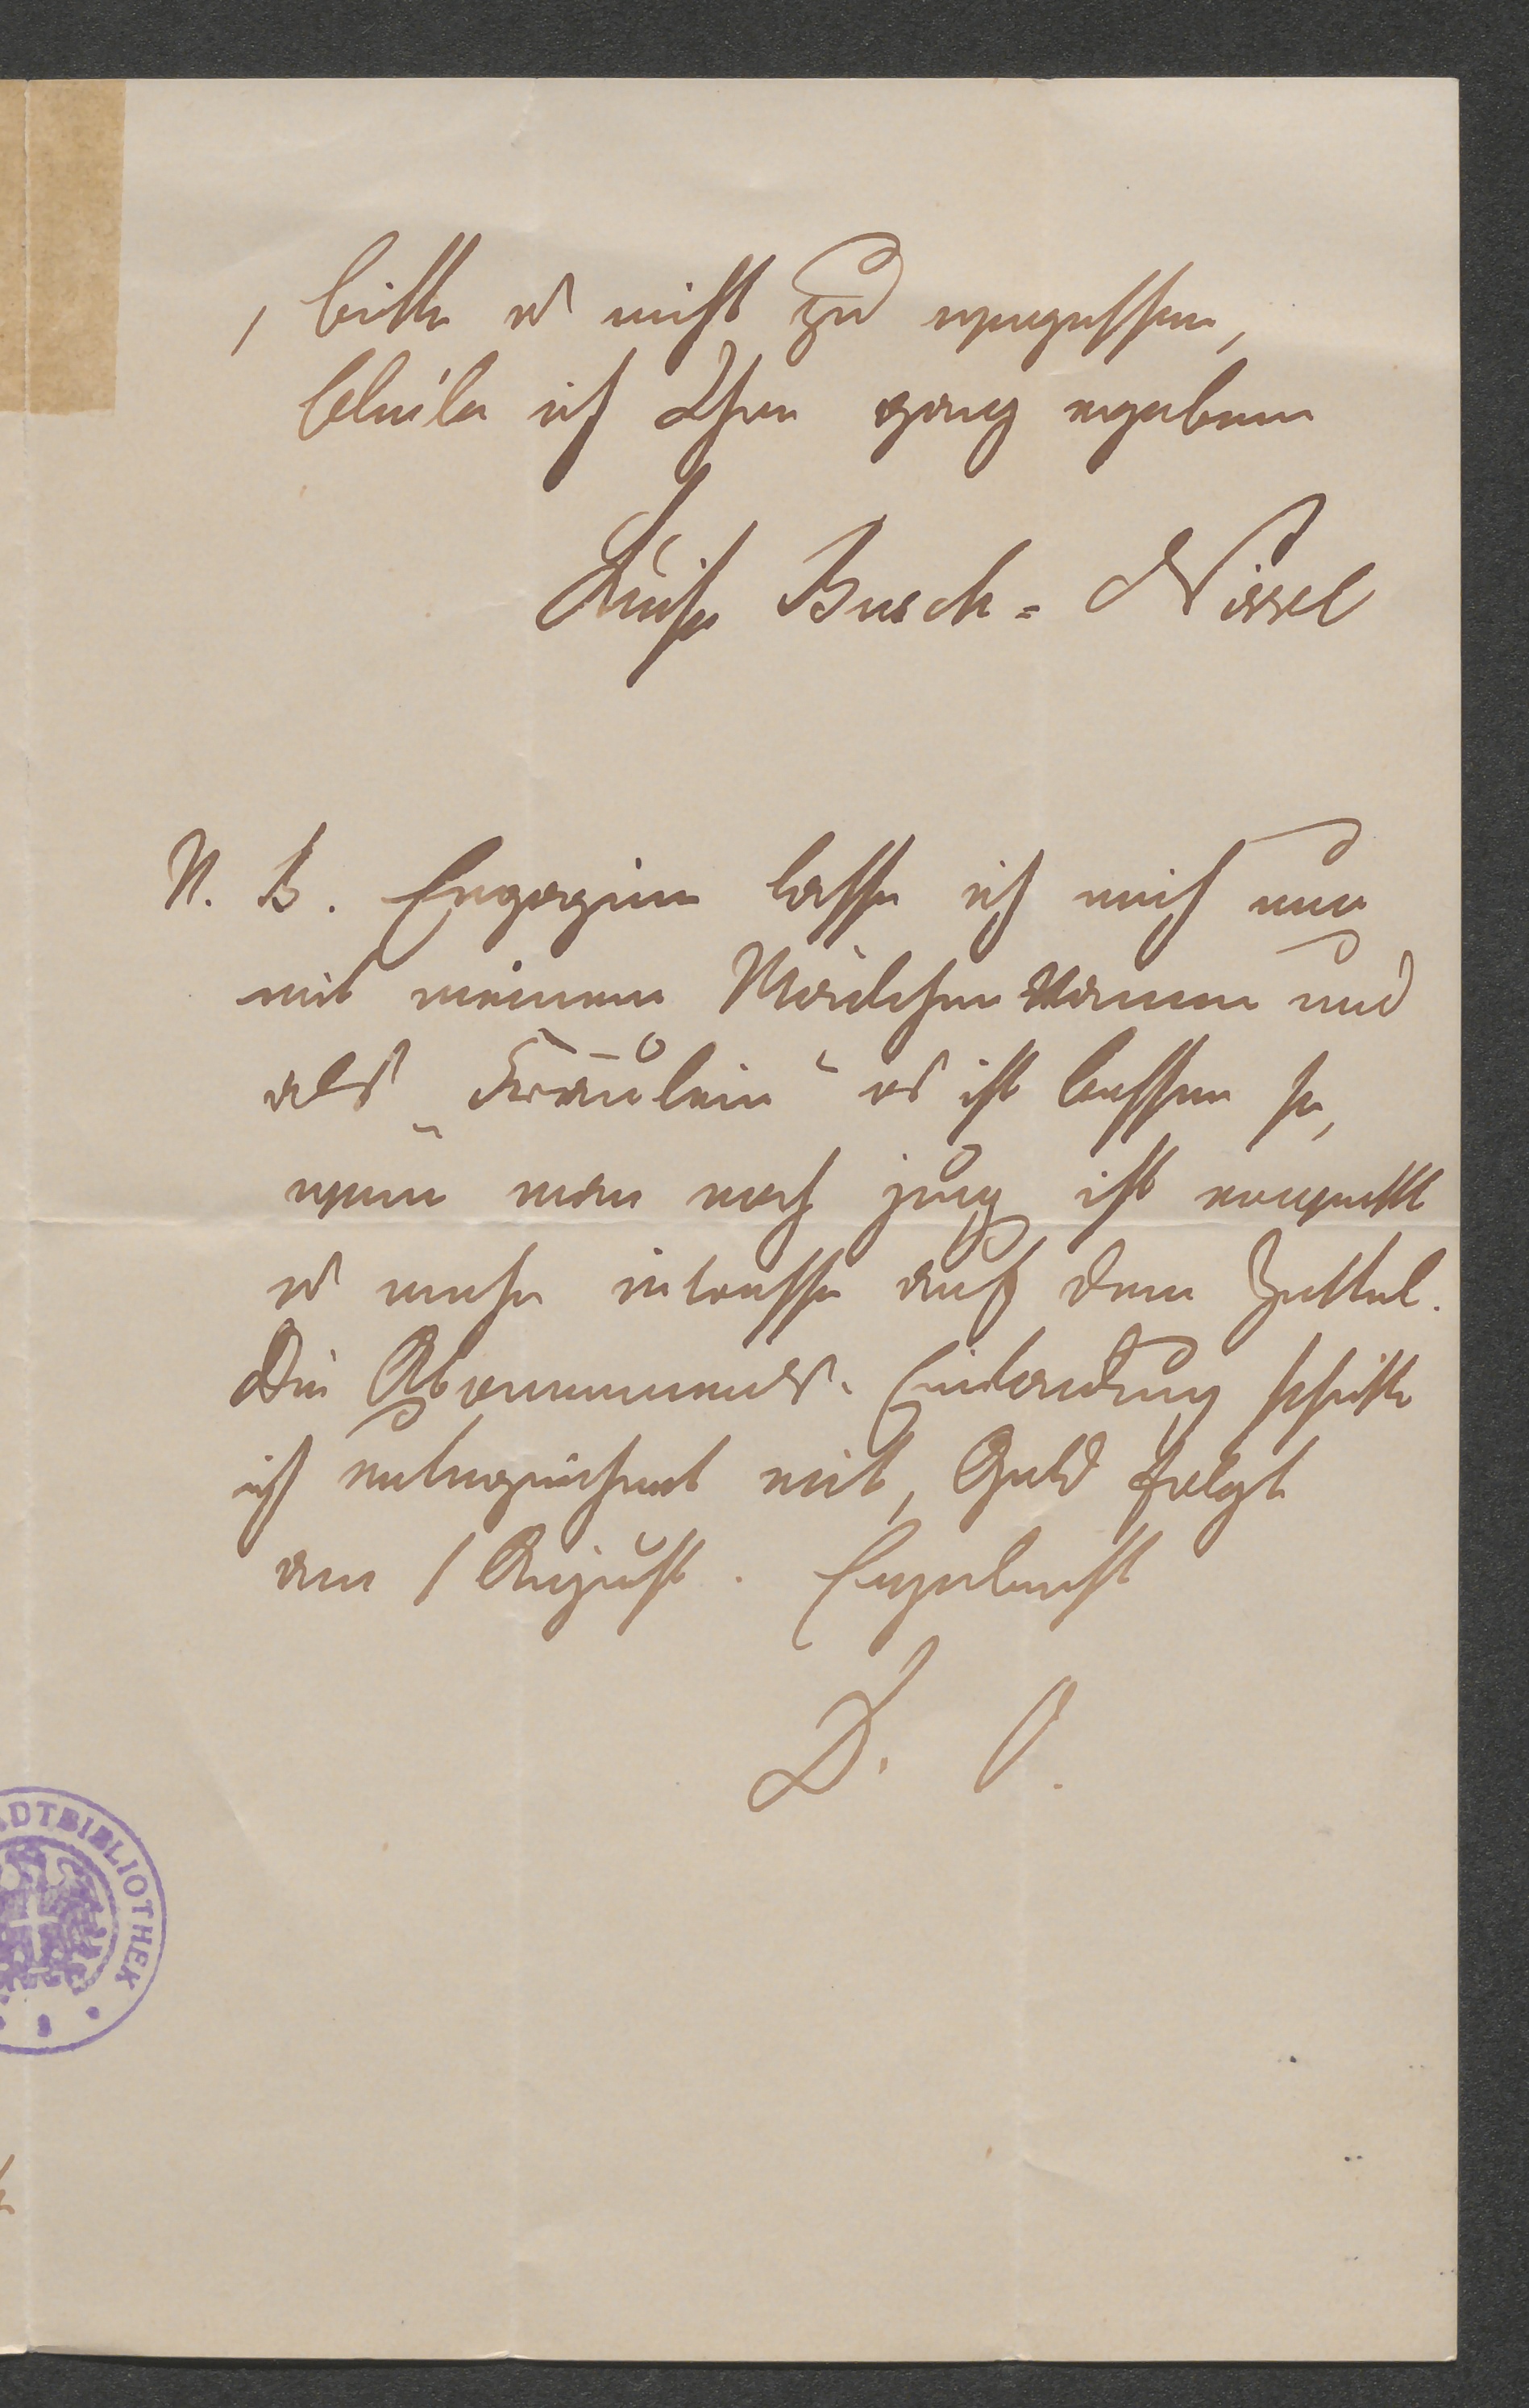 , bitte es nicht zu vergessen,
bleibe ich Ihre ganz ergebene
Luise Busch = Nissel
N. B. Engagiren lasse ich mich nur
mit meinem Mädchen Namen und
als „Fräulein“ es ist besser so,
wenn man noch jung ist erweckt
es mehr intresse auf dem Zettel.
Die Abonnements-Einladung schicke
ich unterzeichnet mit, Geld folgt
am 1 August. Ergebenst
D. O.
ADTBIBLIOTHEK